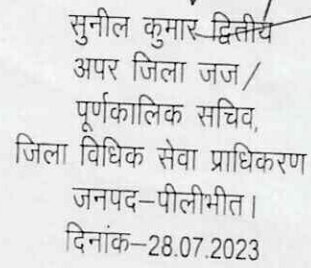 सुनील कुमार द्वितीय
अपर जिला जज/
पूर्णकालिक सचिव,
जिला विधिक सेवा प्राधिकरण
जनपद-पीलीभीत।
दिनांक-28.07.2023